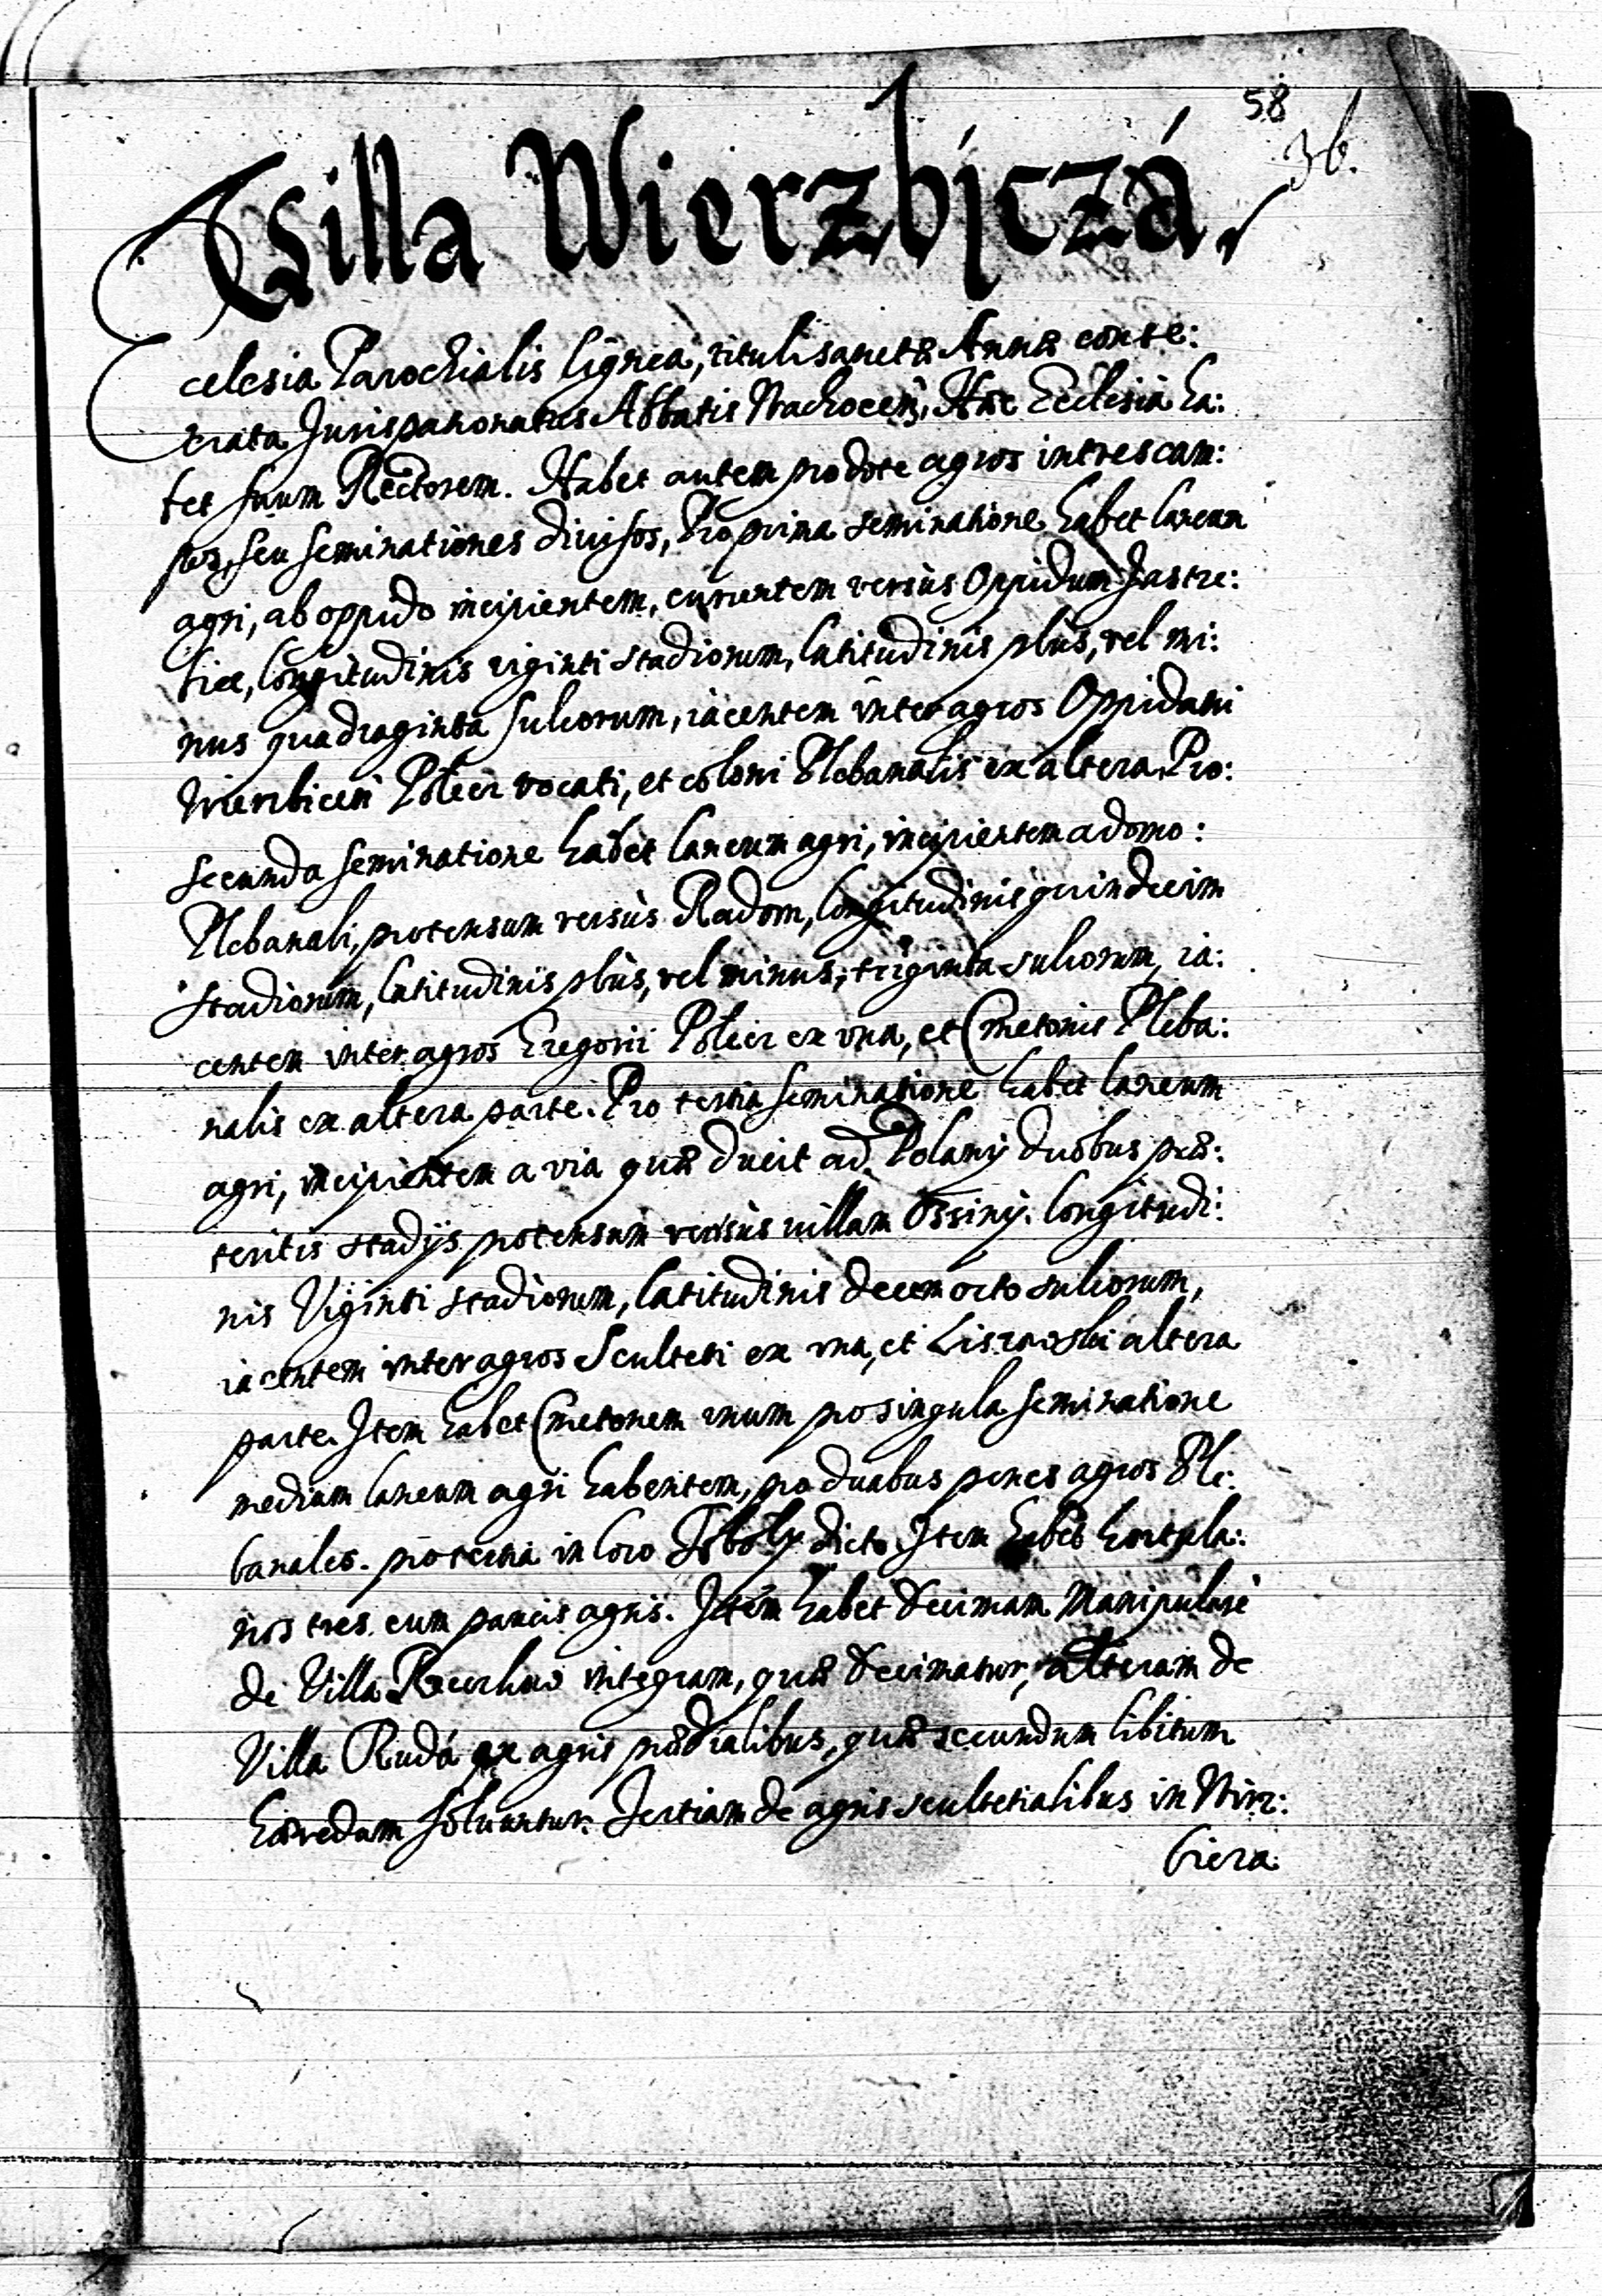 58
36.
Villa Wierzbjczá.
Ecclesia Parochialis lignea, tituli sanctæ Annæ conse:
crata Jurispatronatus Abbatis Wachocen, Hæc Ecclesia ha:
bet suum Rectorem. Habet autem pro dote agros in tres cam:
pos, seu seminationes diuisos, Pro prima seminatione habet laneum
agri, ab oppido incipientem, currentem versus Oppidum Jastre:
biec, longitudinis viginti stadiorum, latitudinis plus, vel mi:
nus quadraginta sulcorum, iacentem inter agros Oppidani
Wierzbicen vocati, et coloni Plebanalis ex altera, Pro:
secunda seminatione habet laneum agri, incipientem a domo:
Plebanali, protensum versus Radom, longitudinis quindecim
stadiorum, latitudinis plus, vel minus, triginta sulcorum, ia:
centem inter agros Gregorii ex vna, et Cmetonis Pleba:
nalis ex altera parte. Pro tertia seminatione habet laneum
agri, incipientem a via quæ ducit ad Polany duobus præ:
teritis stadijs protensum versus uillam Ossiny. longitudi:
nis Viginti stadiorum, latitudinis decem octo sulcorum,
iacentem inter agros Sculteti ex vna, et altera
parte. Item habet Cmetonem vnum pro singula seminatione
medium laneum agri habentem, pro duabus penes agros Ple:
banales. pro tertia in loco dicto. Item habet hortula:
nos tres cum paucis agris. Item habet decimam Manipulare
de Villa integram, quæ decimatur, alteram de
Villa Rudá ex agris prædialibus, quæ secundum libitum
hæredum soluuntur. Tertiam de agris scultetialibus in Wirz:
biera